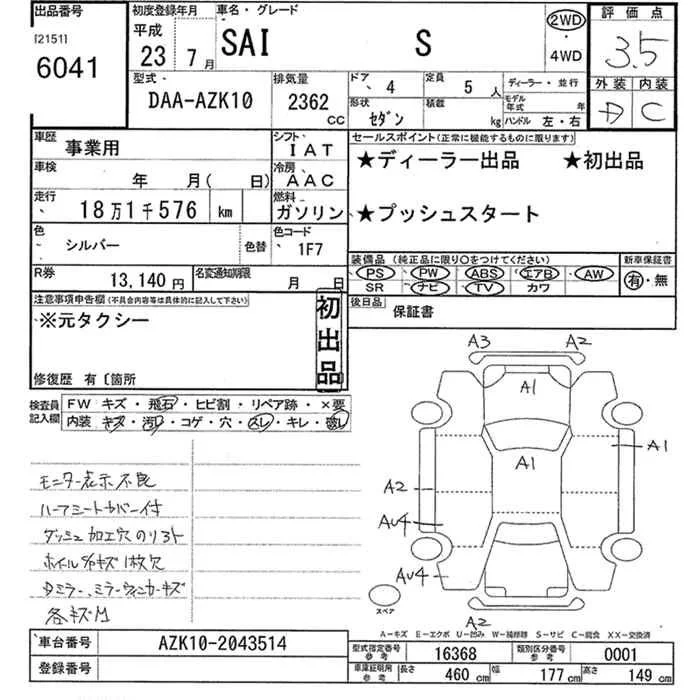 出品番号 初度登録年月 車名・グレード 2WD 評価点
[2151] 平成 SAI S 3.5
6041 23年 7月 4WD
型式 排気量 ドア 4 定員 5人 ディーラー・並行 外装 内装
DAA-AZK10 2362 CC 形状 セダン 積載 kg モデル年式 年 D C
ハンドル 左・右
車歴 事業用 シフト IAT セールスポイント(正常に機能するものに限ります)
車検 年 月( 日) 冷房 AAC ★ディーラー出品 ★初出品
走行 18万1千576 km 燃料 ガソリン ★プッシュスタート
色 シルバー 色替 色コード 1F7 装備品(純正品に限り○をつけてください) 新車保証書
PS PW ABS エアB AW 有・無
R券 13,140円 名変通知期限 月 日 SR ナビ TV カワ
注意事項申告欄(不具合内容等は具体的に記入して下さい) 初出品 後日品 保証書
※元タクシー
修復歴 有〔箇所
検査員記入欄 FW キズ・飛石・ヒビ割・リペア跡・×要
内装 キズ・汚レ・コゲ・穴・スレ・キレ・破レ
モニター表示不良
ハーフシートカバー付
ダッシュ加工穴のりあト
ホイルガキズ1枚欠
Dミラー、ミラーウィンカーキズ
各キズM
A3 A2
A1
A1
A1
A2
AU4
AU4
スペア
A2
A−キズ E−エクボ U−凹み W−補修跡 S−サビ C−腐食 XX−交換済
車台番号 AZK10-2043514 型式指定番号 参考 16368 類別区分番号 参考 0001
登録番号 車庫証明用 参考 長さ 460 cm 幅 177 cm 高さ 149 cm